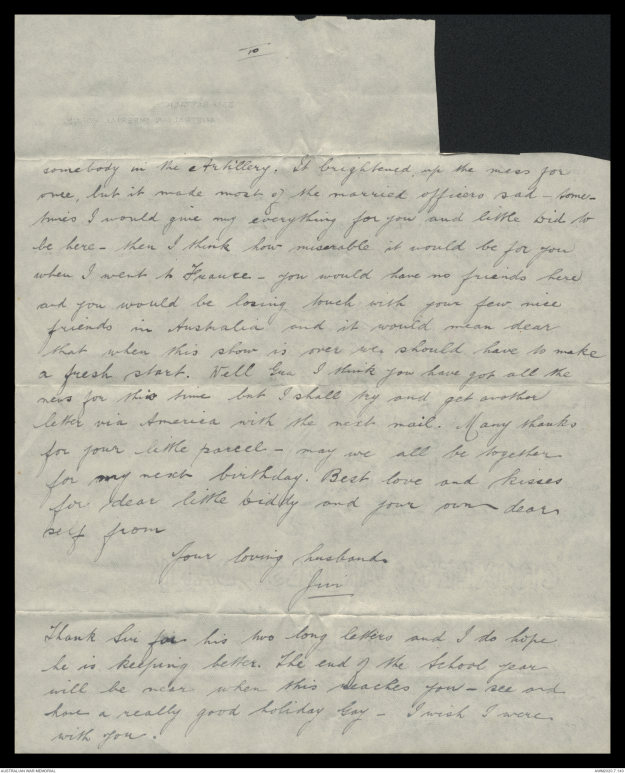 10
somebody in the Artillery. It brightened up the mess for
once, but it made most of the married officers sad - some-
times I would give my everything for you and little Bid to
be here - then I think how miserable it would be for you
when I went to France - you would have no friends here
and you would be losing touch with your few nice
friends in Australia and it would mean dear
that when this show is over we should have to make
a fresh start. Well I think you have got all the
news for this time but I shall try and get another
letter via America with the next mail. Many thanks
for your little parcel - may we all be together
for my next birthday. Best love and kisses
for dear little Biddy and your own dear
self from
Your loving husband
Thank for his two long letters and I do hope
he is keeping better. The end of the School year
will be near when this reaches you - see and
have a really good holiday - I wish I were
with you.
AUSTRALIAN WAR MEMORIAL